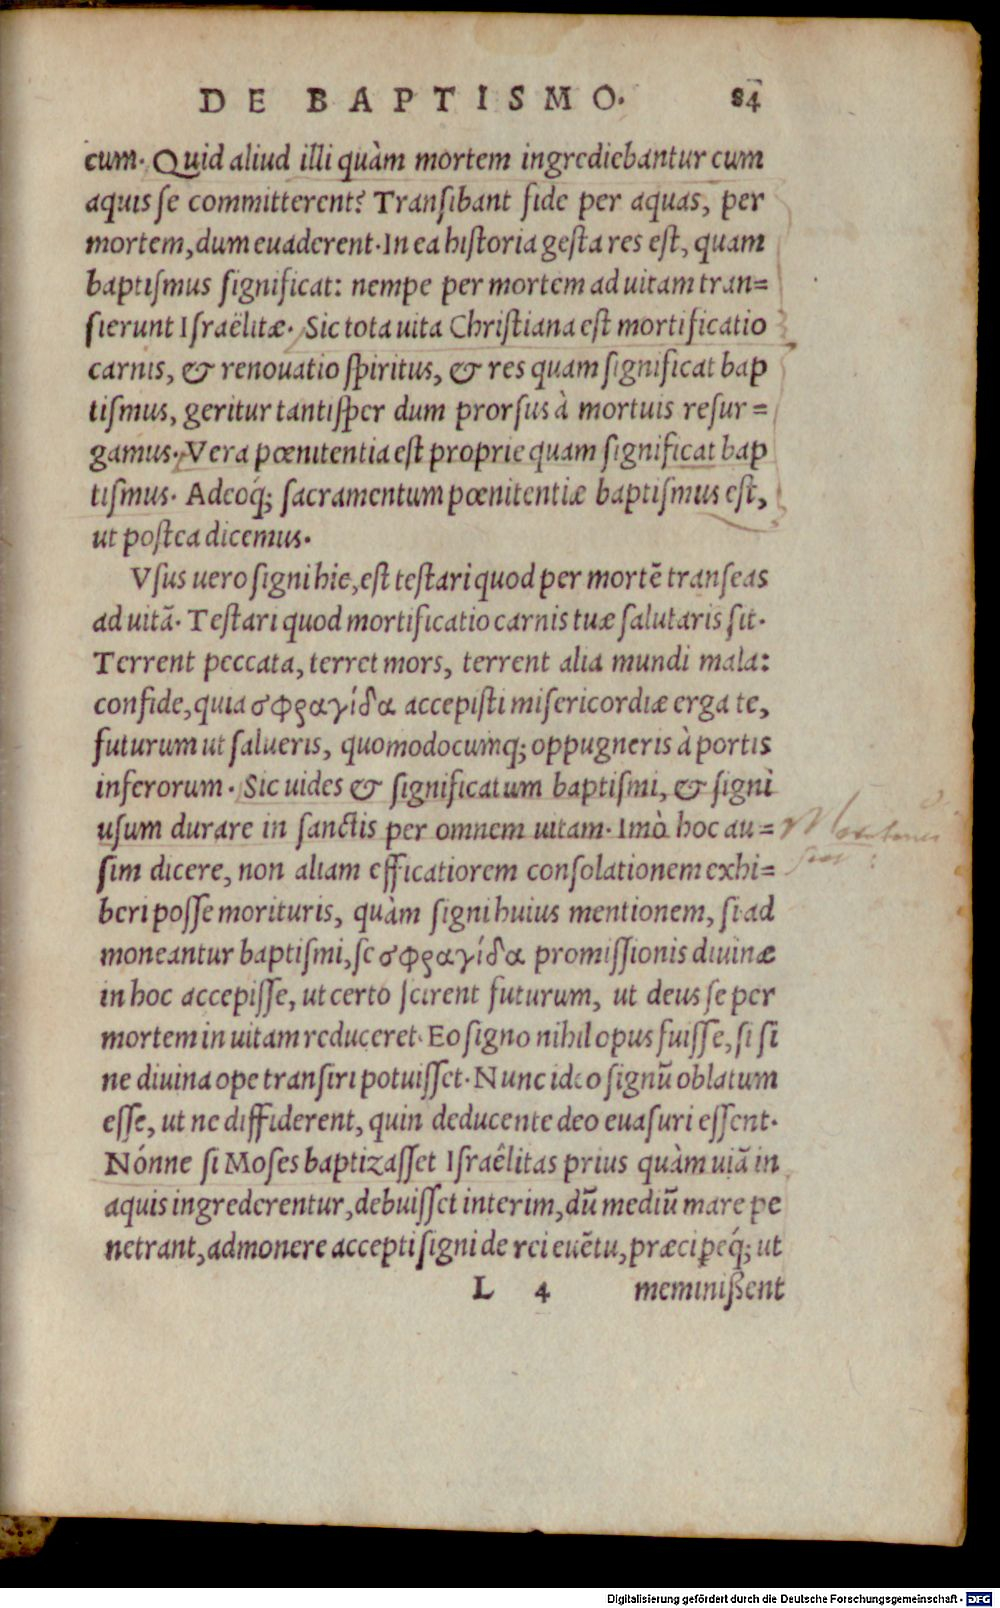 DE BAPTISMO. 84
cum. Quid aliud illi quàm mortem ingrediebantur cum
aquis se committerent? Transibant fide per aquas, per
mortem, dum euaderent. In ea historia gesta res est, quam
baptismus significat: nempe per mortem ad uitam tran=
sierunt Israëlitæ. Sic tota uita Christiana est mortificatio
carnis, & renouatio spiritus, & res quam significat bap
tismus, geritur tantisper dum prorsus à mortuis resur=
gamus. Vera pœnitentia est proprie quam significat bap
tismus. Adeoq́; sacramentum pœnitentiæ baptismus est,
ut postea dicemus.
Vsus uero signi hic, est testari quod per mortẽ transeas
ad uitã. Testari quod mortificatio carnis tuæ salutaris sit.
Terrent peccata, terret mors, terrent alia mundi mala:
confide, quia σφραγίδα accepisti misericordiæ erga te,
futurum ut salueris, quomodocumq; oppugneris à portis
inferorum. Sic uides & significatum baptismi, & signi
usum durare in sanctis per omnem uitam. Imò hoc au=
sim dicere, non aliam efficatiorem consolationem exhi=
beri posse morituris, quàm signi huius mentionem, si ad
moneantur baptismi, se σφραγίδα promissionis diuinæ
in hoc accepisse, ut certo scirent futurum, ut deus se per
mortem in uitam reduceret. Eo signo nihil opus fuisse, si si
ne diuina ope transiri potuisset. Nunc ideo signũ oblatum
esse, ut ne diffiderent, quin deducente deo euasuri essent.
Nónne si Moses baptizasset Israêlitas prius quàm uiã in
aquis ingrederentur, debuisset interim, dũ mediũ mare pe
netrant, admonere accepti signi de rei euẽtu, præcipeq́; ut
L 4 meminißent
Digitalisierung gefördert durch die Deutsche Forschungsgemeinschaft - DFG